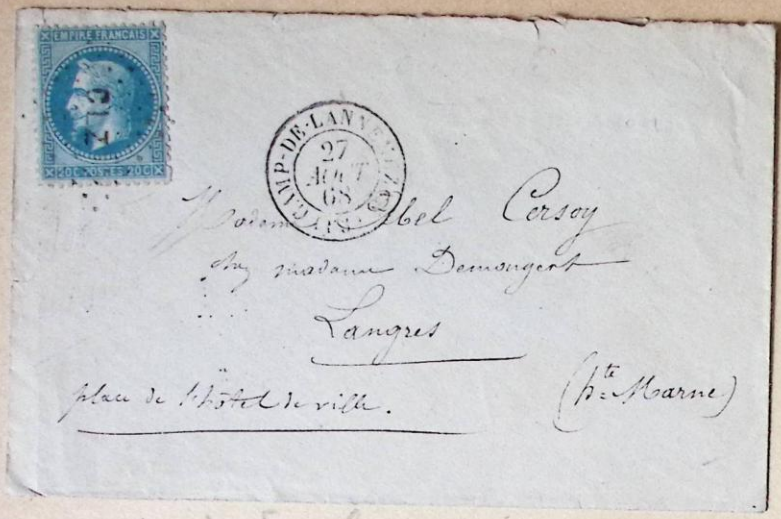 EMPIRE FRANÇAIS
20 C POSTES 20 C
CAMP-DE-LANNEMEZAN
27
AOUT
68
Madame Abel Cersoy
chez madame Demongeot
Langres
(hte Marne)
place de l'hôtel de ville.